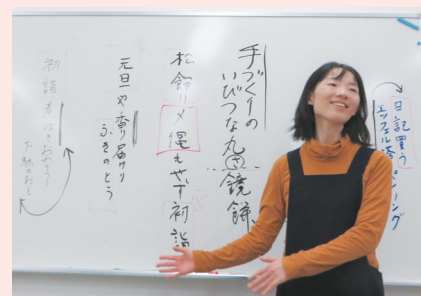 日記買う
エッフェル塔
手づくりの
いびつな丸 鏡餅
松飾り〆縄 せず初詣
元旦や香り届けり
ふきのとう
初詣
下駄のおと